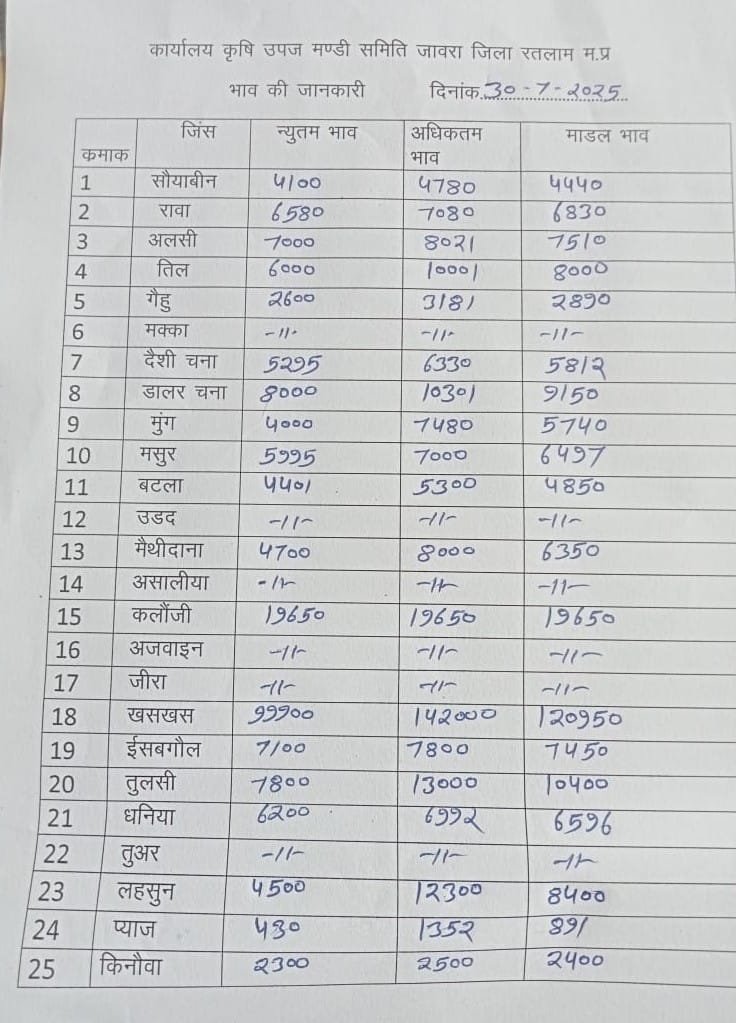 कार्यालय कृषि उपज मण्डी समिति जावरा जिला रतलाम म.प्र
भाव की जानकारी दिनांक 30-7-2025
कमाक जिंस न्युतम भाव अधिकतम भाव माडल भाव
1 सौयाबीन 4100 4780 4440
2 रावा 6580 7080 6830
3 अलसी 7000 8021 7510
4 तिल 6000 10001 8000
5 गैहु 2600 3181 2890
6 मक्का -11- -11- -11-
7 दैशी चना 5295 6330 5812
8 डालर चना 8000 10301 9150
9 मुंग 4000 7480 5740
10 मसुर 5995 7000 6497
11 बटला 4401 5300 4850
12 उडद -11- -11- -11-
13 मैथीदाना 4700 8000 6350
14 असालीया -11- -11- -11-
15 कलौंजी 19650 19650 19650
16 अजवाइन -11- -11- -11-
17 जीरा -11- -11- -11-
18 खसखस 99900 142000 120950
19 ईसबगौल 7100 7800 7450
20 तुलसी 7800 13000 10400
21 धनिया 6200 6992 6596
22 तुअर -11- -11- -11-
23 लहसुन 4500 12300 8400
24 प्याज 430 1352 891
25 किनौवा 2300 2500 2400